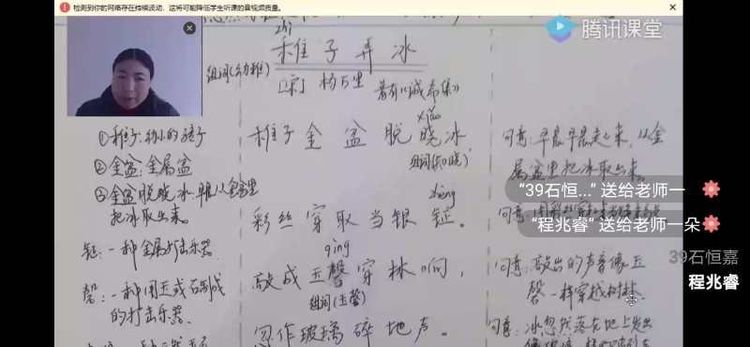 检测到你的网络存在持续波动，这将可能降低学生听课的音视频质量。
腾讯课堂
zhì
稚子弄冰
组词(幼稚)
[宋] 杨万里
著有《诚斋集》
①稚子:幼小的孩子
②金盆:金属盆
③金盆脱晓冰:早晨从金盆里
把冰取出来。
钲:一种金属打击乐器
磬:一种用玉或石制成
的打击乐器.
xiǎo
稚子金盆脱晓冰,
组词(知晓)
zhēng
彩丝穿取当银钲。
qìng
敲成玉磬穿林响,
组词(玉磬)
忽作玻璃碎地声。
句意:早晨早晨起来,从金
属盆里把冰取出来。
句意:
句意:敲出的声音像玉
磬一样穿越树林
句意:冰忽然落在地上发出
“39石恒...” 送给老师一
“程兆睿” 送给老师一朵
39石恒嘉
程兆睿